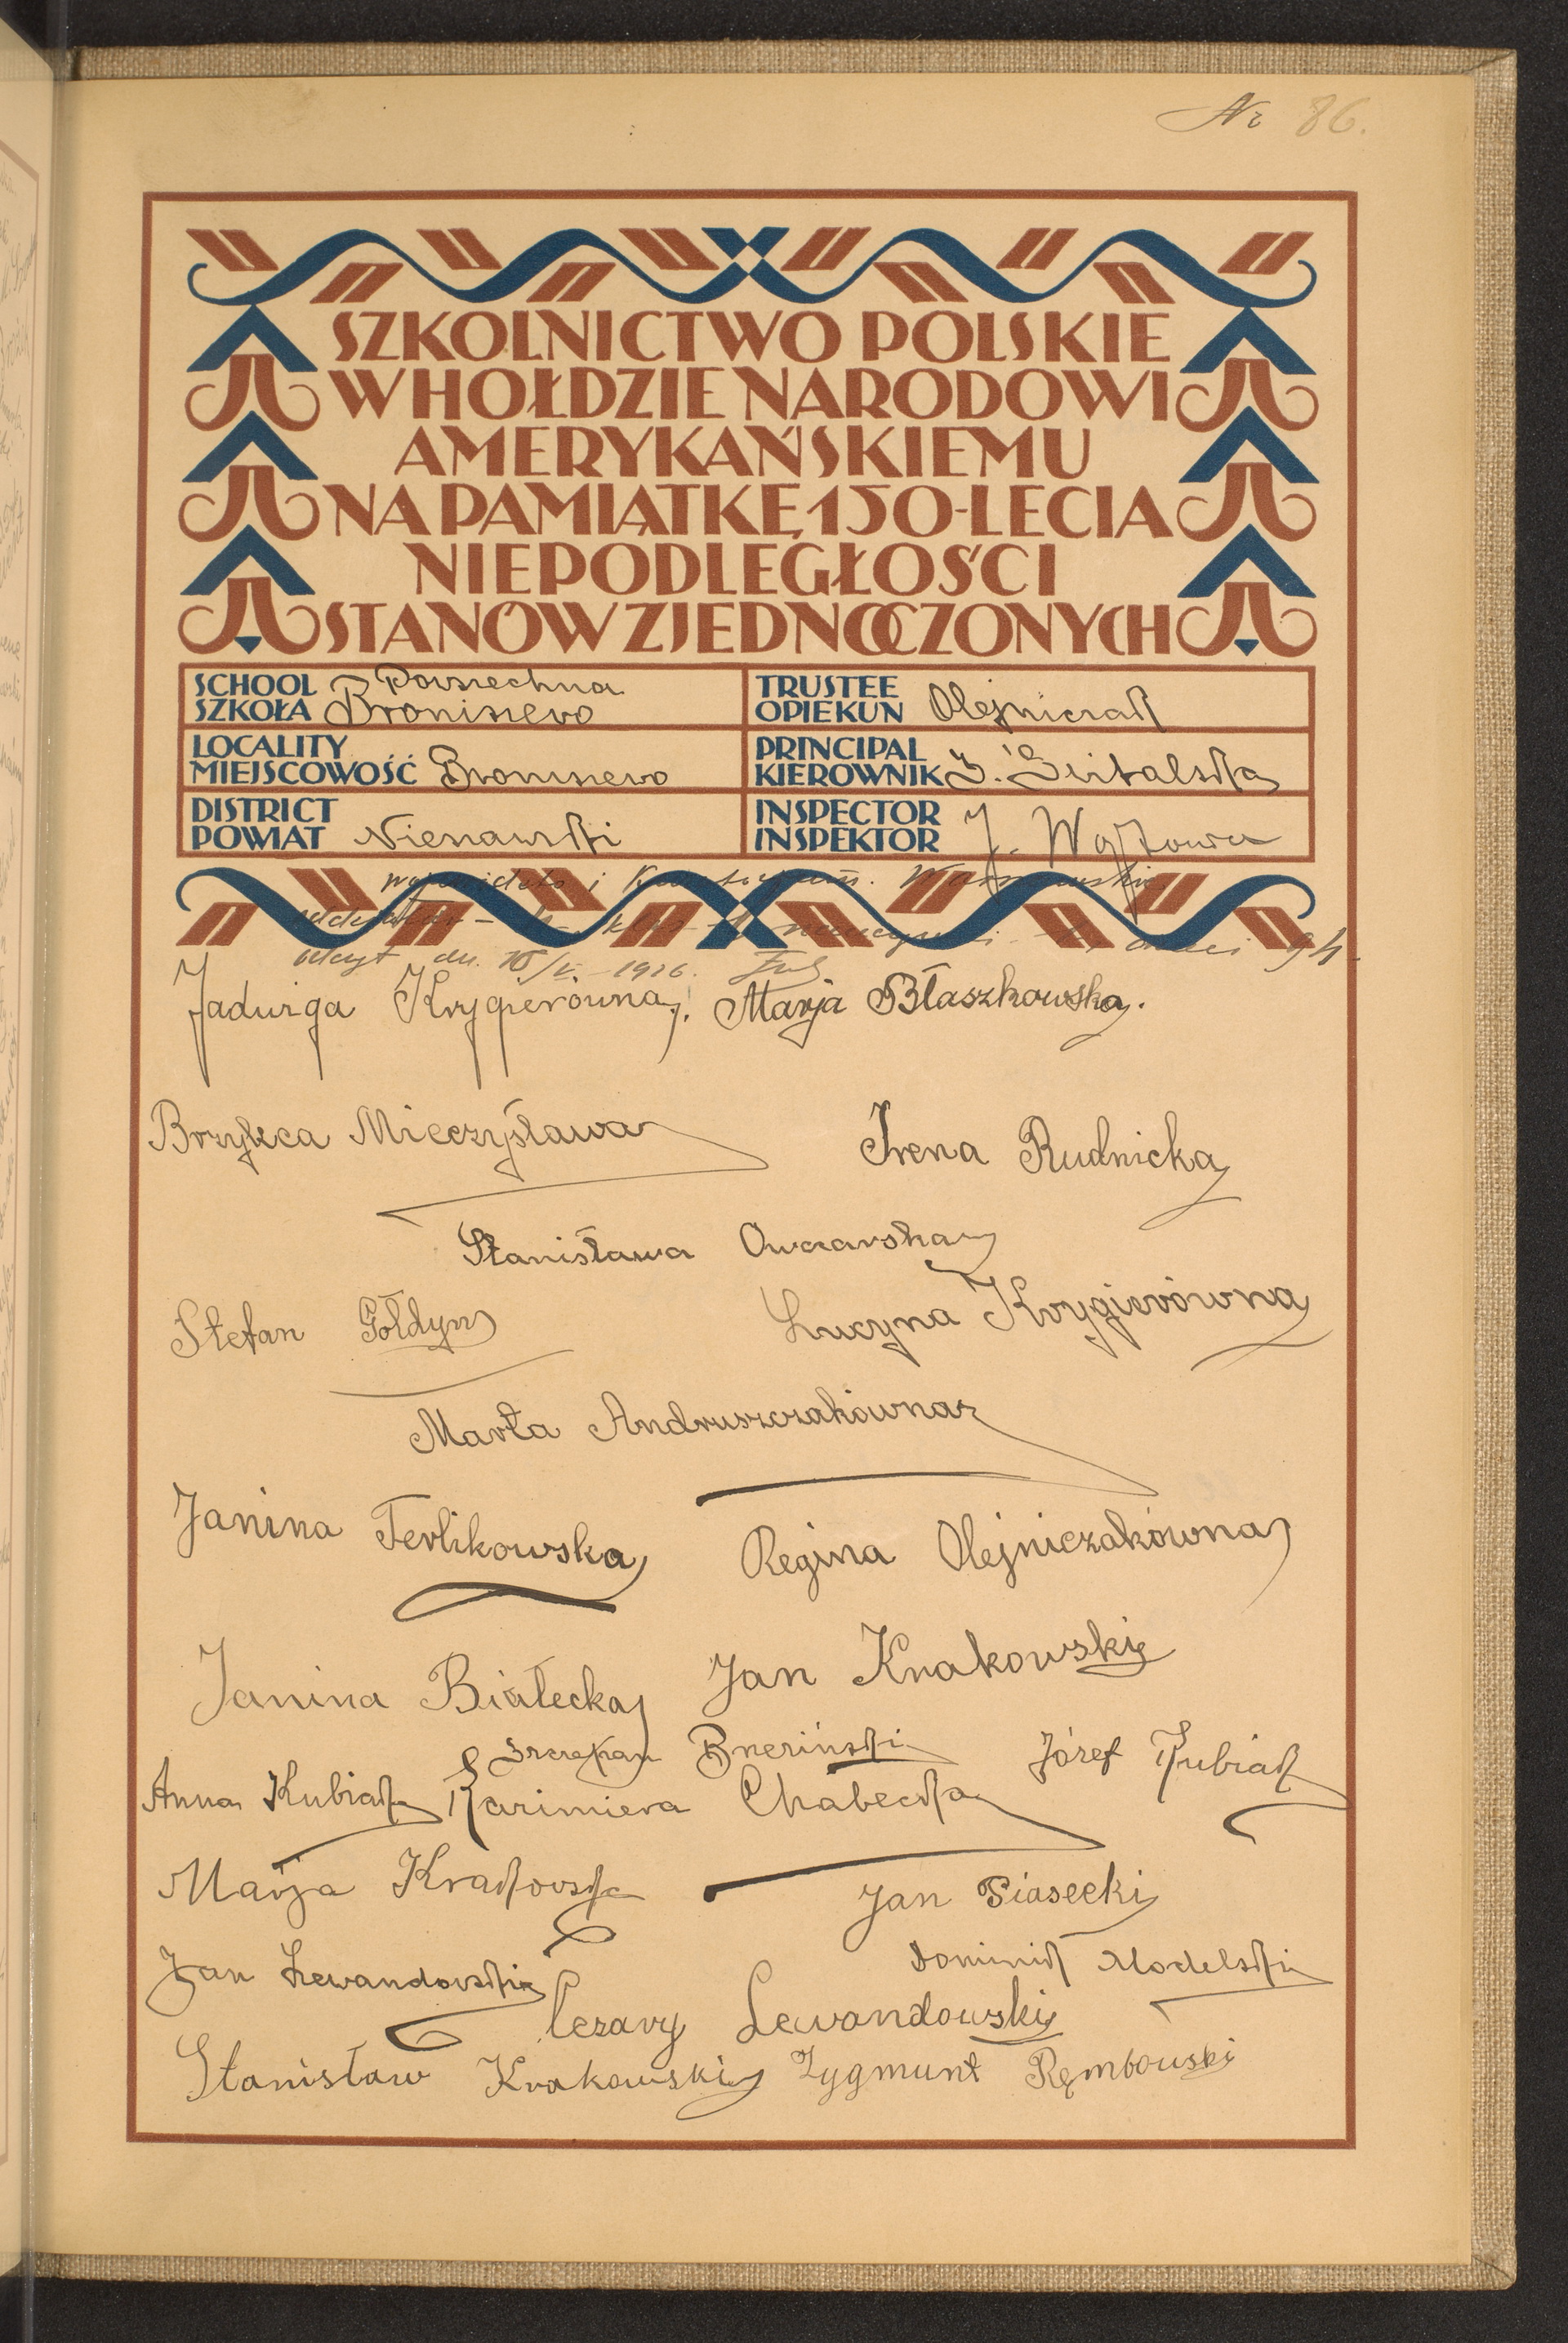 Nr 86.
SZKOLNICTWO POLSKIE
W HOŁDZIE NARODOWI
AMERYKAŃSKIEMU
NA PAMIĄTKĘ 150-LECIA
NIEPODLEGŁOŚCI
STANÓW ZJEDNOCZONYCH
SCHOOL SZKOŁA Powszechna Broniszewo
TRUSTEE OPIEKUN Olejniczak
LOCALITY MIEJSCOWOŚĆ Broniszewo
PRINCIPAL KIEROWNIK
DISTRICT POWIAT Nieszawski
INSPECTOR INSPEKTOR J.
1926.
Jadwiga Krygierówna. Marja Błaszkowska.
Brzykca Mieczysława Irena Rudnicka
Stanisława Owczarska
Stefan Gołdyn Lucyna Krygierówna
Marta Andruszczakówna
Janina Terlikowska Regina Olejniczakówna
Janina Białecka Jan Krakowski
Szczepan Bneziński Józef Kubiak
Anna Kubiak Kazimiera Chabecka
Marja Krakowska Jan Piasecki
Jan Lewandowski Dominik Modelski
Cezary Lewandowski
Stanisław Krakowski Zygmunt Rębowski